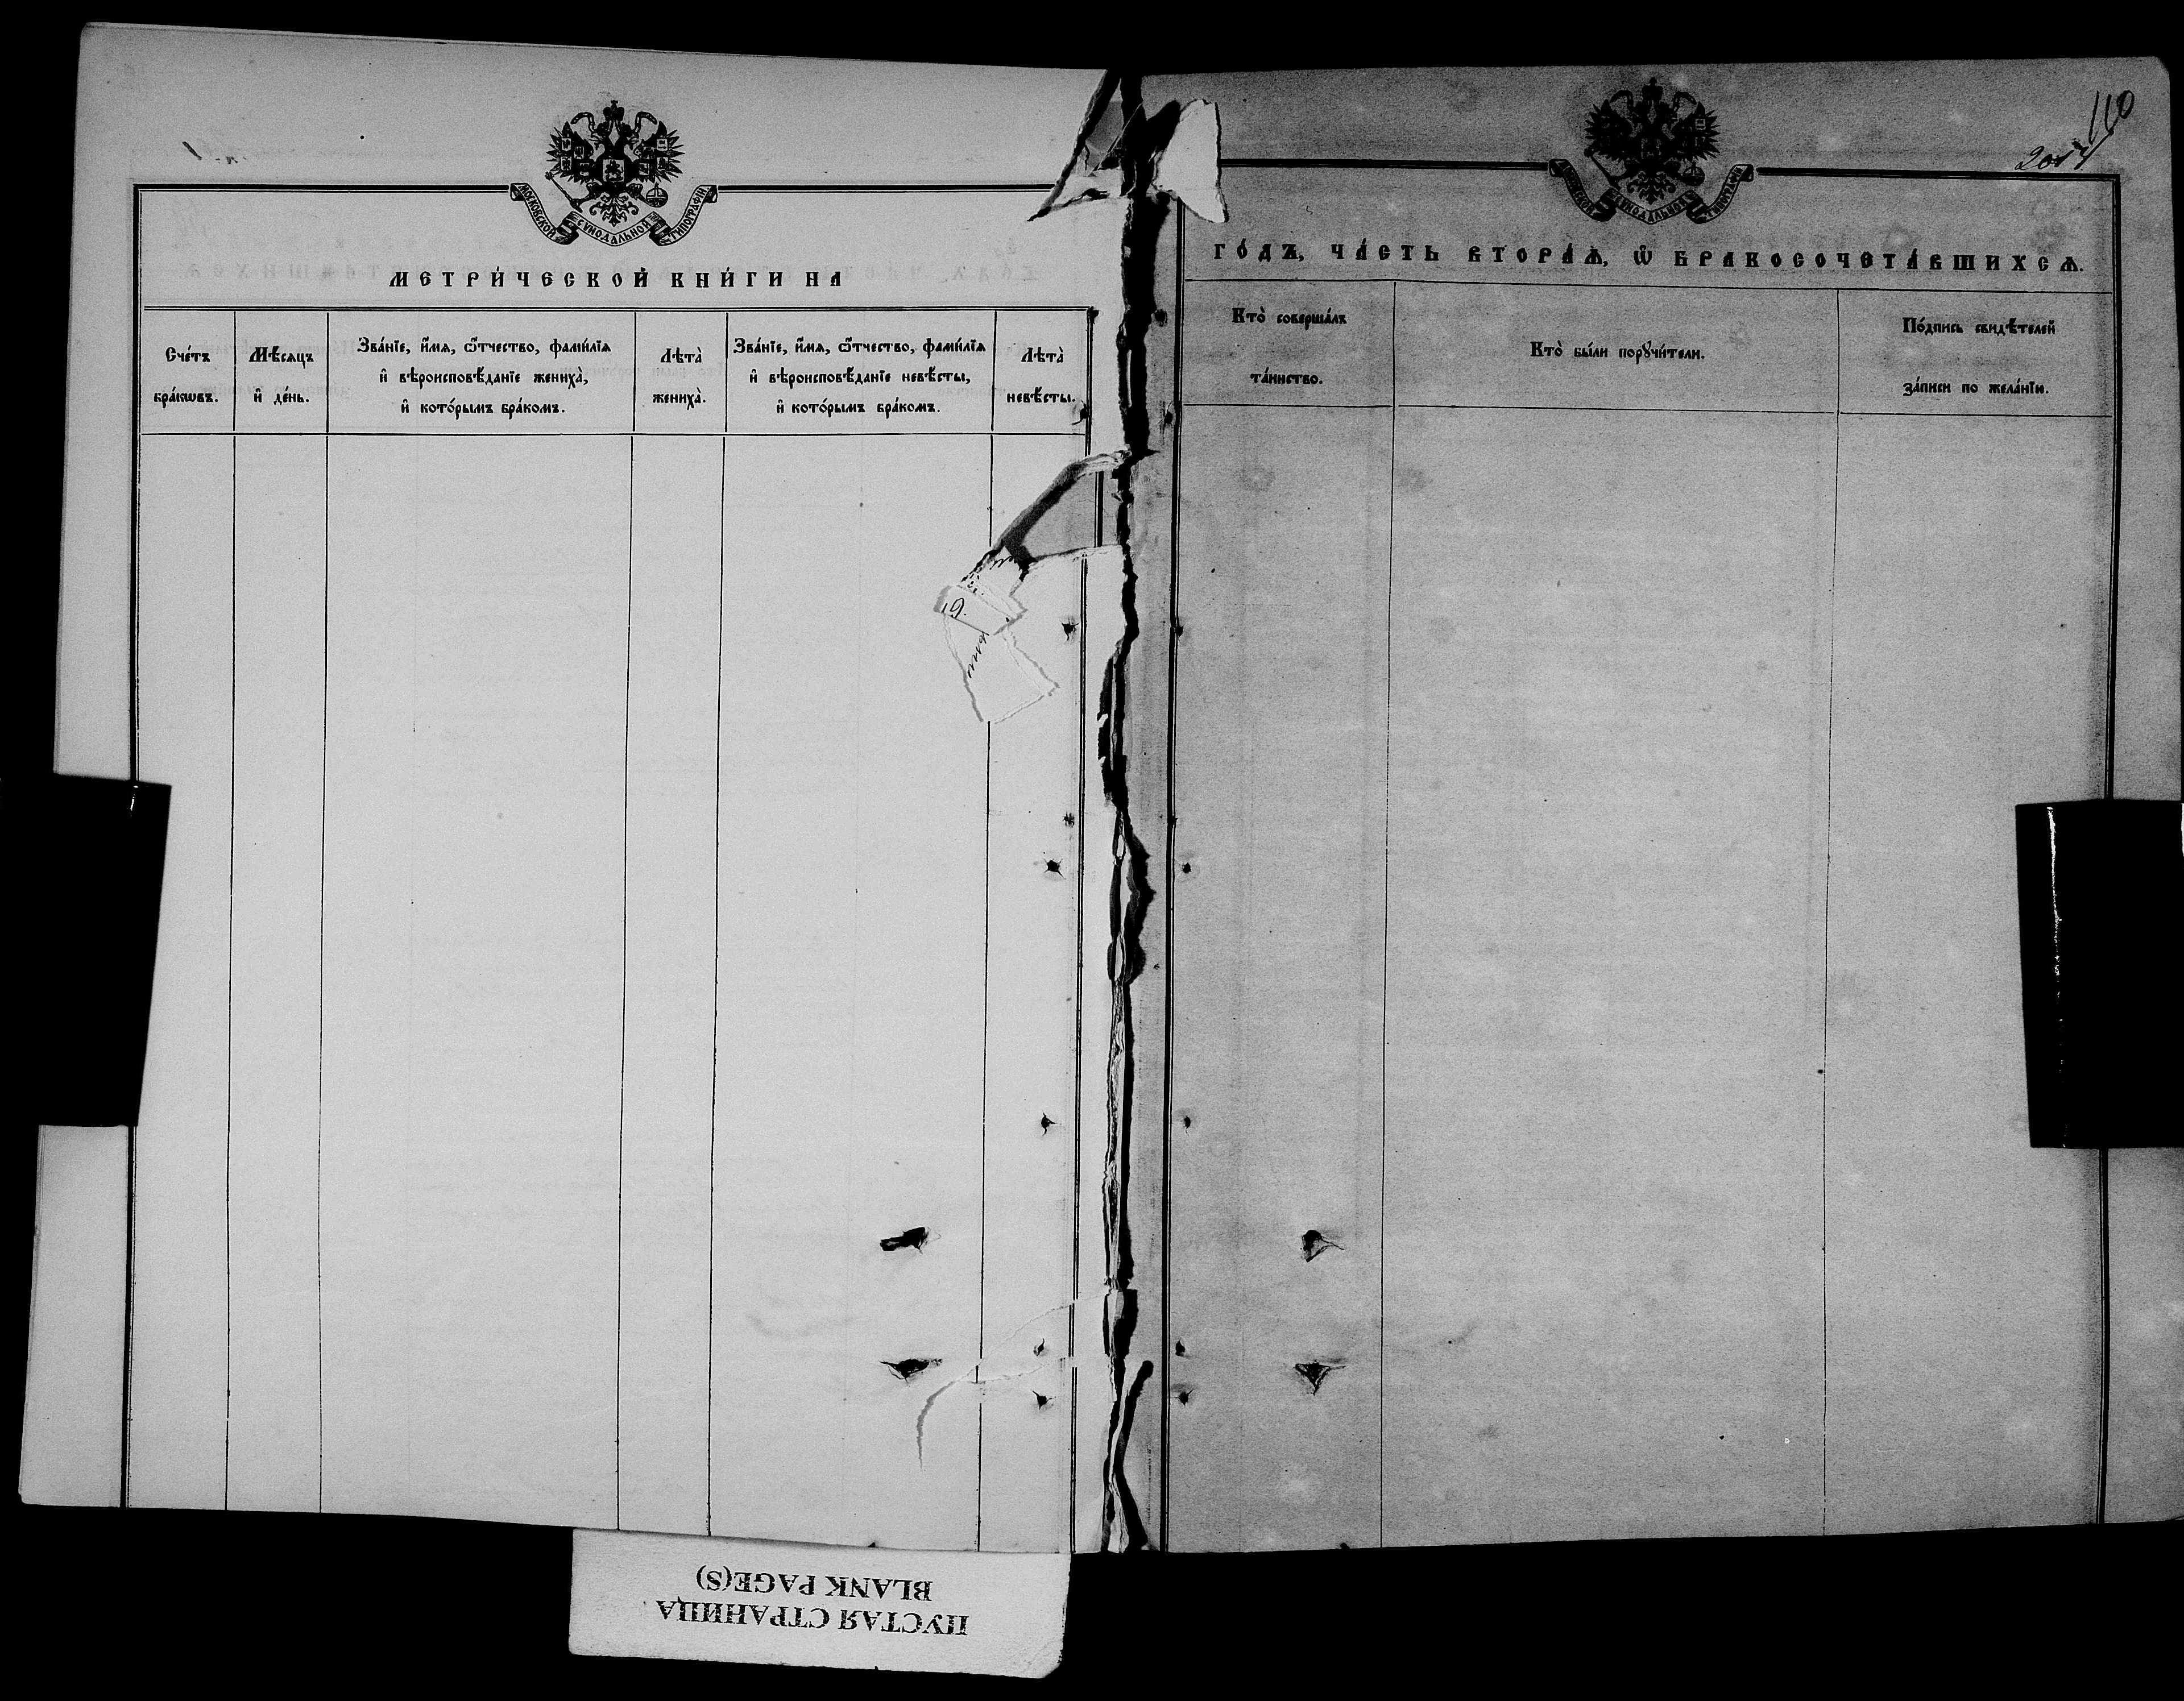 МОСКОВСКОЙ СѴНОДАЛЬНОЙ ТИПОГРАФІИ
МЕТРИ́ЧЕСКОЙ КНИ́ГИ НА
Сче́тъ
бра́кѡвъ.
Мѣ́сяцъ
и҆ де́нь.
Зва́нїе, и҆́мѧ, ѻ҆́тчество, фами́лїѧ
и҆ вѣроисповѣ́данїе жениха̀,
и҆ кото́рымъ бра́комъ.
Лѣта̀
жениха̀.
Зва́нїе, и҆́мѧ, ѻ҆́тчество, фами́лїѧ
и҆ вѣроисповѣ́данїе невѣ́сты,
и҆ кото́рымъ бра́комъ.
Лѣта̀
невѣ́сты.
110
МОСКОВСКОЙ СѴНОДАЛЬНОЙ ТИПОГРАФІИ
ГО́ДЪ, ЧА́СТЬ ВТОРА́Ѧ, Ѽ БРАКОСОЧЕТА́ВШИХСѦ.
Кто̀ соверша́лъ
та́инство.
Кто̀ бы́ли порꙋчи́тели.
По́дпись свидѣ́телей
за́писи по жела́нїю.
ПУСТАЯ СТРАНИЦА
BLANK PAGE(S)